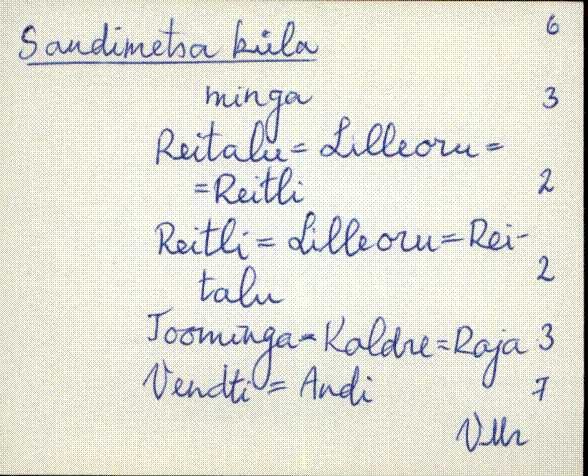 Sandimetsa küla 6
minga 3
Reitalu = Lilleoru =
= Reitli 2
Reitli = Lilleoru = Rei-
talu 2
Toominga = Kaldre = Raja 3
Vendti = Andi 7
VMr